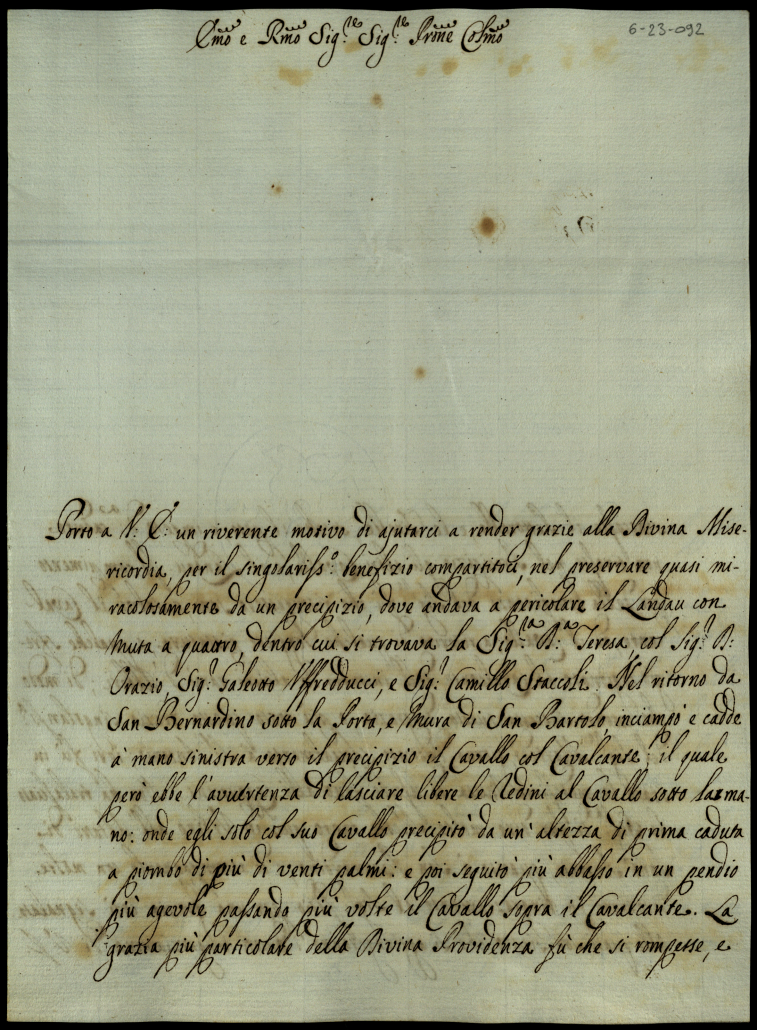 6-23-092
Emo e Rmo Sig.re Sig.re Prone Colmo
Porto a V: E: un riverente motivo di ajutarci a render grazie alla Divina Mise-
ricordia, per il singolariss:o benefizio compartitoci, nel preservare quasi mi-
racolosamente da un precipizio, dove andava a pericolare il Landau con
muta a quattro, dentro cui si trovava la Sig:ra D:a Teresa, col Sig:r D:
Orazio, Sig:r Galeotto Uffredducci, e Sig:r Camillo Staccoli. Nel ritorno da
San Bernardino sotto la Porta, e Mura di San Bartolo, inciampò e cadde
à mano sinistra verso il precipizio il Cavallo col Cavalcante; il quale
però ebbe l'avvertenza di lasciare libere le Redini al Cavallo sotto la ma-
no: onde egli solo col suo Cavallo precipitò da un'altezza di prima caduta
a piombo di più di venti palmi: e poi seguitò più abbasso in un pendio
più agevole passando più volte il Cavallo sopra il Cavalcante. La
grazia più particolare della Divina Providenza fù che si rompesse, e